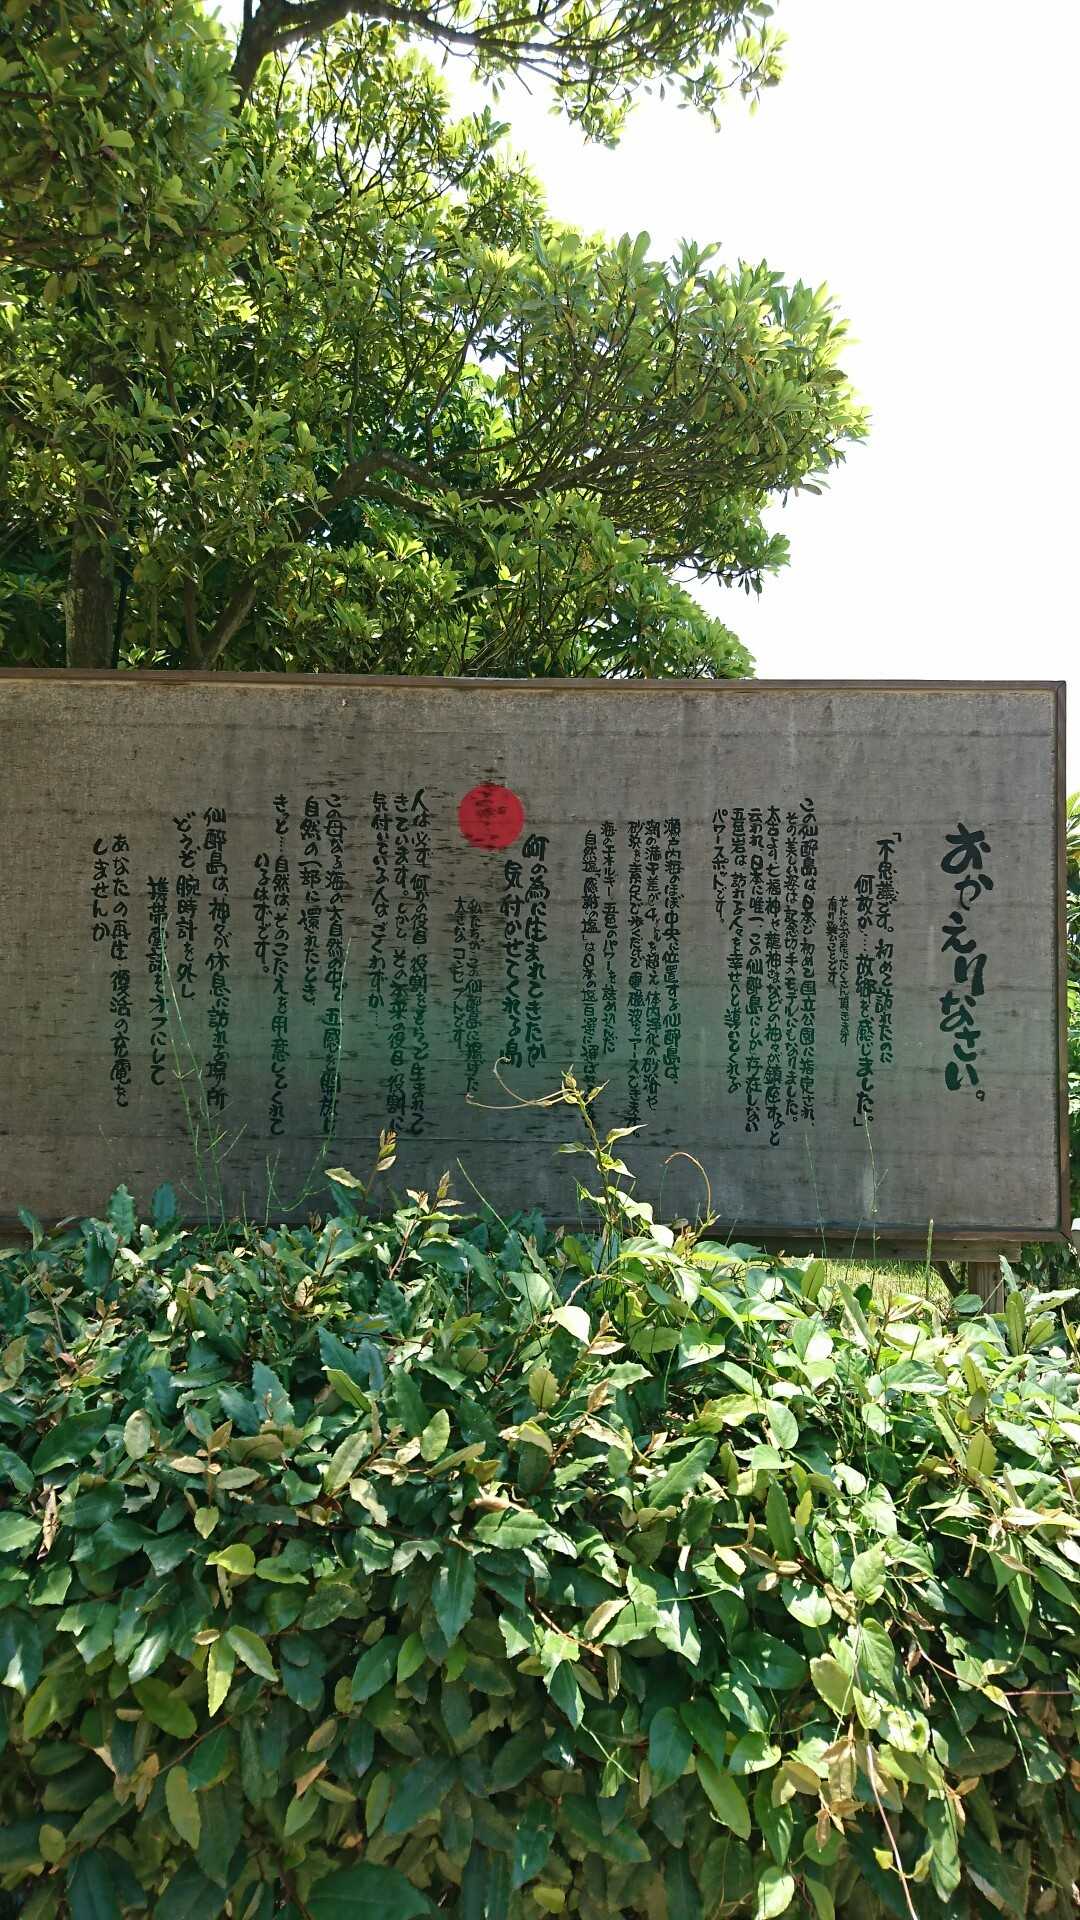 おかえりなさい。
「不思議です。初めて訪れたのに
何故か…故郷を感じました。」
そんなお便りをたくさん頂きます
有り難いことです
この仙酔島は日本で初めて国立公園に指定され、
その美しい姿は記念切手のモデルにもなりました。
太古より七福神や龍神などの神々が鎮座すると
云われ、日本に唯一、この仙酔島にしか存在しない
五色岩は訪れる人々を幸せへと導いてくれる
パワースポットです。
瀬戸内海のほぼ中央に位置する仙酔島は、
潮の満干差が4㍍を超え体内浄化の砂浴や
砂浜を素足で歩くだけで電磁波をアースできます。
海のエネルギー五色のパワーを詰め込んだ
自然塩「感謝の塩」は日本の塩百選に選ば
何の為に生まれてきたか
気付かせてくれる島
私たちがこの仙酔島に掲げた
大きなコンセプトです
人は必ず何かの役目、役割をもらって生まれて
きています。しかし、その本来の役目、役割に
気付いている人はごくわずか…
この母なる海の大自然の中で五感を開放し
自然の一部に還れたとき、
きっと…自然はそのこたえを用意してくれて
いるはずです。
仙酔島は神々が休息に訪れる場所
どうぞ腕時計を外し
携帯電話をオフにして
あなたの再生、復活の充電を
しませんか